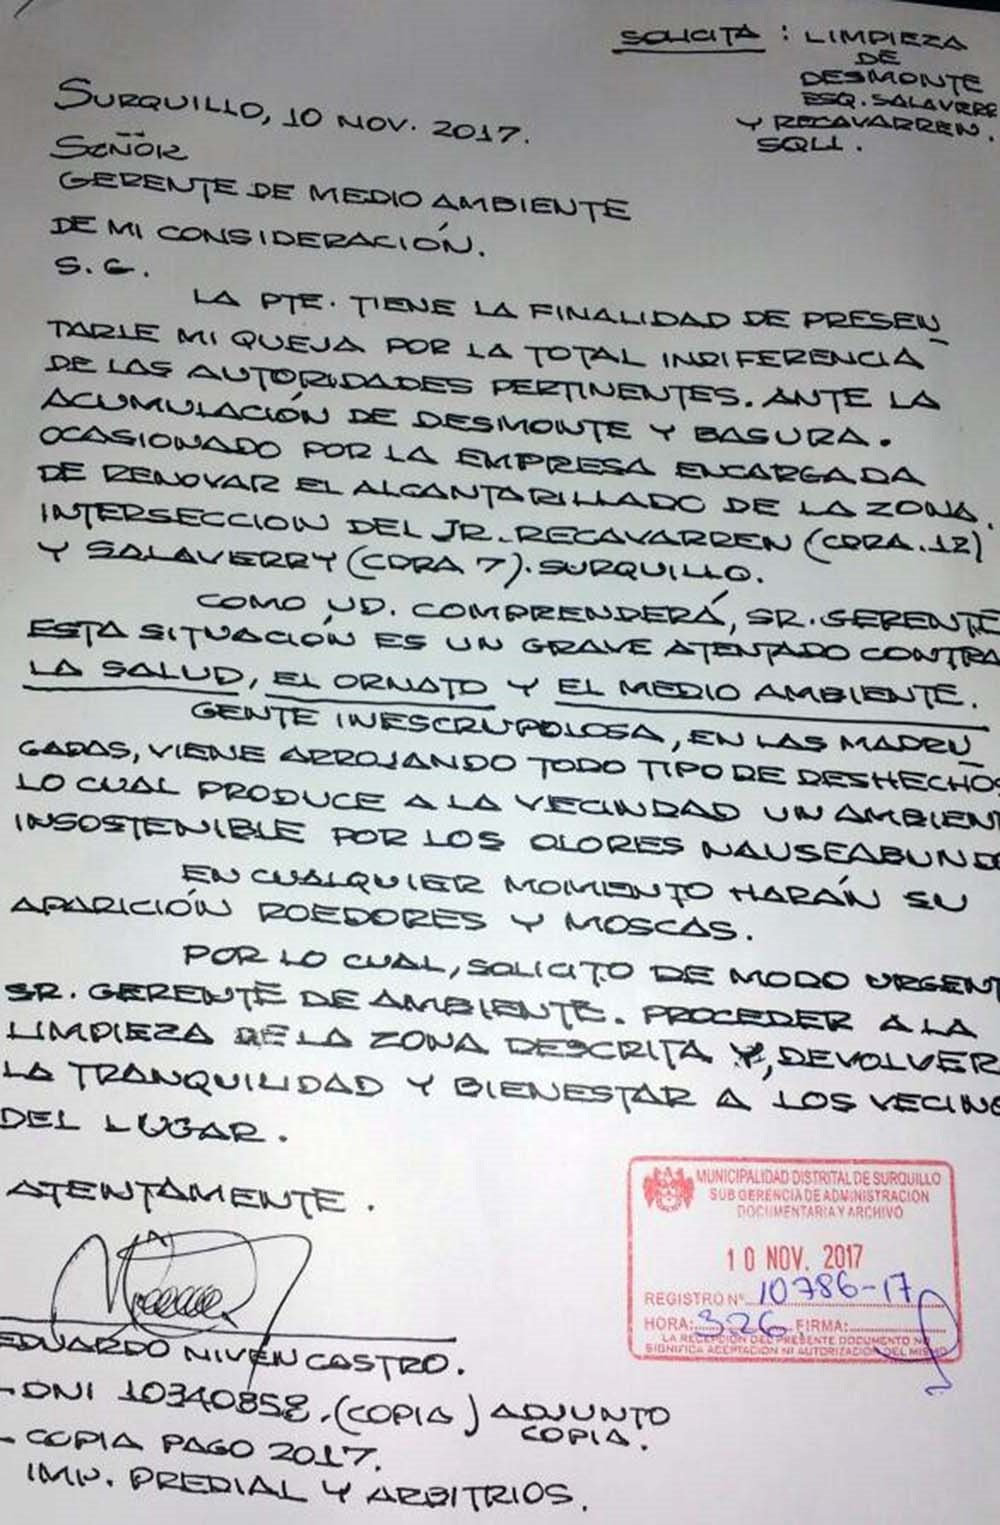 SOLICITA : LIMPIEZA
DE
DESMONTE
ESQ. SALAVERR
Y RECAVARREN.
SQLL.
SURQUILLO, 10 NOV. 2017.
SEÑOR
GERENTE DE MEDIO AMBIENTE
DE MI CONSIDERACIÓN.
S. G.
LA PTE. TIENE LA FINALIDAD DE PRESEN
TARLE MI QUEJA POR LA TOTAL INDIFERENCIA
DE LAS AUTORIDADES PERTINENTES. ANTE LA
ACUMULACIÓN DE DESMONTE Y BASURA.
OCASIONADO POR LA EMPRESA ENCARGADA
DE RENOVAR EL ALCANTARILLADO DE LA ZONA.
INTERSECCION DEL JR. RECAVARREN (CDRA. 12)
Y SALAVERRY (CDRA 7). SURQUILLO.
COMO UD. COMPRENDERÁ, SR. GERENTE
ESTA SITUACIÓN ES UN GRAVE ATENTADO CONTRA
LA SALUD, EL ORNATO Y EL MEDIO AMBIENTE.
GENTE INESCRUPOLOSA, EN LAS MADRU
GADAS, VIENE ARROJANDO TODO TIPO DE DESHECHOS
LO CUAL PRODUCE A LA VECINDAD UN AMBIENT
INSOSTENIBLE POR LOS OLORES NAUSEABUND
EN CUALQUIER MOMENTO HARÁN SU
APARICIÓN ROEDORES Y MOSCAS.
POR LO CUAL, SOLICITO DE MODO URGENT
SR. GERENTE DE AMBIENTE. PROCEDER A LA
LIMPIEZA DE LA ZONA DESCRITA Y, DEVOLVER
LA TRANQUILIDAD Y BIENESTAR A LOS VECINO
DEL LUGAR.
ATENTAMENTE.
EDUARDO NIVEN CASTRO.
- DNI 10340858. (COPIA) ADJUNTO
COPIA.
- COPIA PAGO 2017.
IMP. PREDIAL Y ARBITRIOS.
MUNICIPALIDAD DISTRITAL DE SURQUILLO
SUB GERENCIA DE ADMINISTRACION
DOCUMENTARIA Y ARCHIVO
10 NOV. 2017
REGISTRO Nº 10786-17
HORA: 326 FIRMA:
LA RECEPCION DEL PRESENTE DOCUMENTO NO
SIGNIFICA ACEPTACION NI AUTORIZACION DEL MISMO